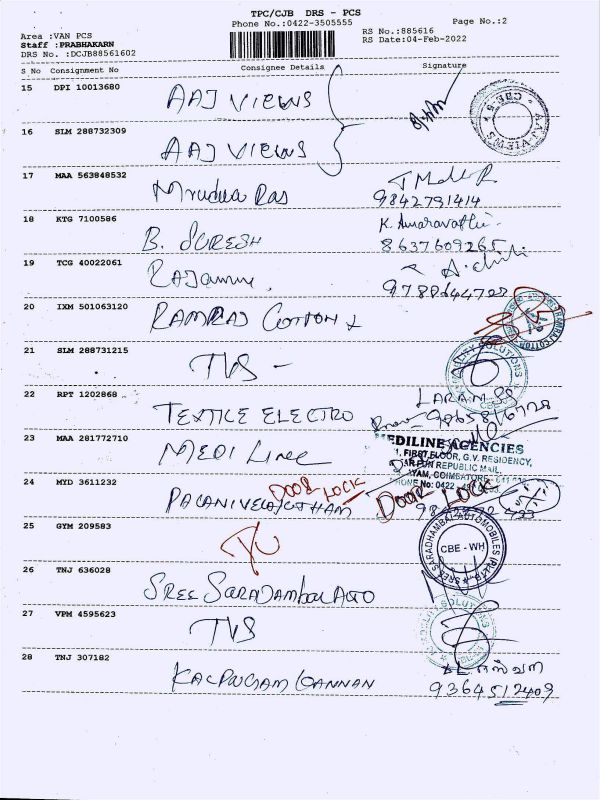 TPC/CJB DRS - PCS
Phone No.:0422-3505555
Page No.:2
Area :VAN PCS
RS No.:885616
Staff :PRABHAKARN
RS Date:04-Feb-2022
DRS No. :DCJB88561602
S No Consignment No Consignee Details Signature
15 DPI 10013680
AAJ VIEWS
AAJ VIEWS * CBE-5 *
16 SLM 288732309
AAJ VIEWS
17 MAA 563848532
9842791414
18 KTG 7100586
B. SURESH
K. Amaravathi
8637609265
19 TCG 40022061
20 IXM 501063120
RAMRAJ COTTON
RAMRAJ COTTON
21 SLM 288731215
TVS -
SOLUTIONS
22 RPT 1202868
TEXTILE ELECTRO
23 MAA 281772710
MEDI Line
MEDILINE AGENCIES
FIRST FLOOR, G.V. RESIDENCY,
FUN REPUBLIC MAIL,
COIMBATORE
PHONE No: 0422
24 MYD 3611232
DOOR LOCK
DOOR LOCK
25 GYM 209583
SREE SARADHAMBAL AUTOMOBILES
CBE - WH
26 TNJ 636028
SREE SARADAMBAL AUTO
27 VPM 4595623
TVS
SOLUTIONS
28 TNJ 307182
9364512409